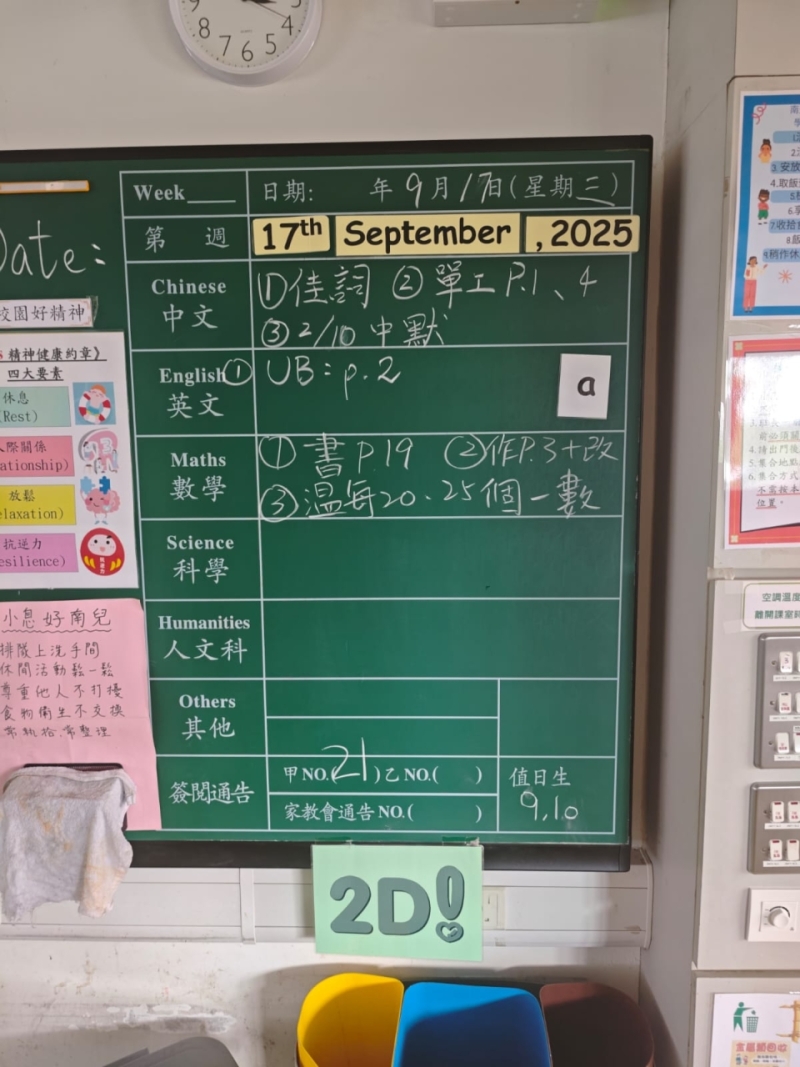 8 7 6 5 4
Date:
校園好精神
精神健康約章》
四大要素
休息
(Rest)
人際關係
ationship)
放鬆
elaxation)
抗逆力
esilience)
小息好南兒
排隊上洗手間
休閒活動鬆一鬆
尊重他人不打擾
食物衞生不交換
常執拾.常整理
Week____ 日期: 年9月17日(星期三)
第 週 17th September , 2025
Chinese ①佳詞 ②單工P.1、4
中文 ③2/10中默
English① UB:p.2
英文
a
Maths ①書P.19 ②作P.3+改
數學 ③溫每20、25個一數
Science
科學
Humanities
人文科
Others
其他
簽閱通告
甲NO.(21)乙NO.( )
家教會通告NO.( )
值日生
9,10
2D!
空調溫度
離開課室
4.請出門後
5.集合地點
6.集合方式
不需按本
位置。